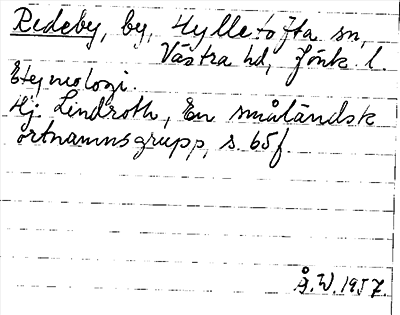 Redeby, by, Hylletofta sn,
Västra hd, Jönk. l.
Etymologi.
Hj. Lindroth, En småländsk
ortnamnsgrupp, s. 65f.
Å.W. 1957.